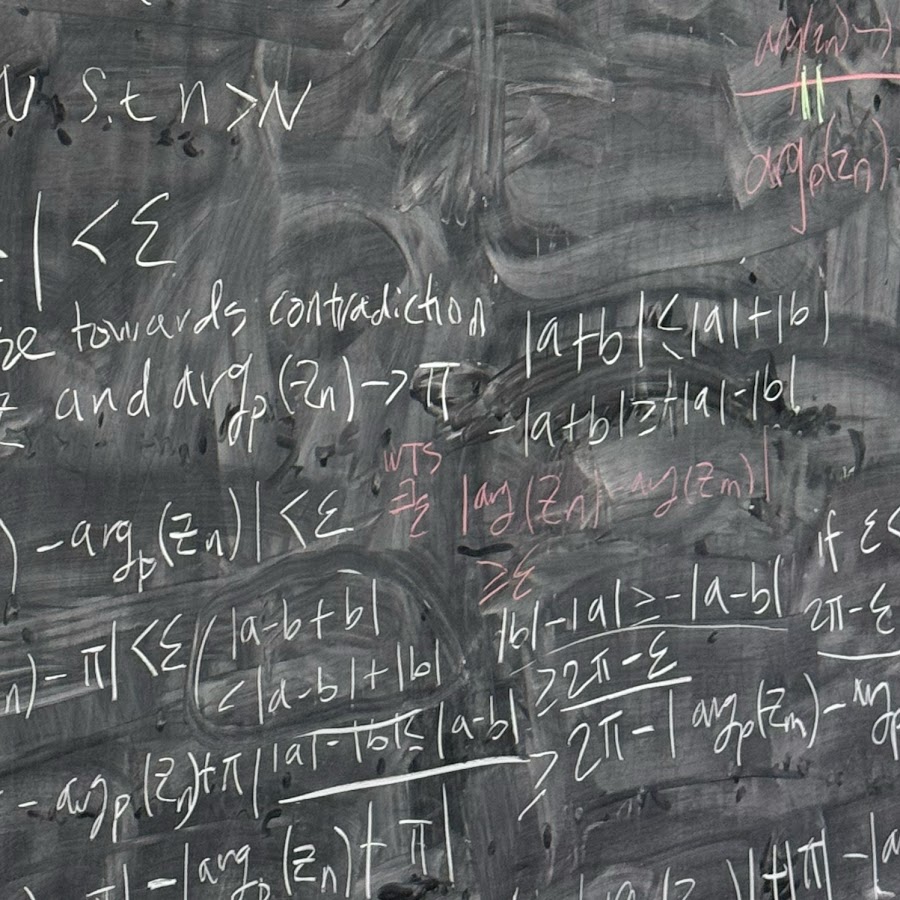 N s.t n > N
arg(zn) →
||
argp(zn)
| < ε
towards contradiction
z and argp(zn) → π
|a+b| ≤ |a|+|b|
-|a+b| ≥ -|a|-|b|
WTS
∃ε |arg(zn) - arg(zm)|
≥ε
) - argp(zn)| < ε
if ε<
n) - π| < ε
(|a-b+b|
< |a-b|+|b|
|a|-|b| ≤ |a-b|
|b|-|a| ≥ -|a-b|
2π-ε
≥ 2π-ε
≥ 2π-| argp(zm) - argp
- argp(zn)+π|
π| - |argp(zn) + π|
)|+|π| - |a